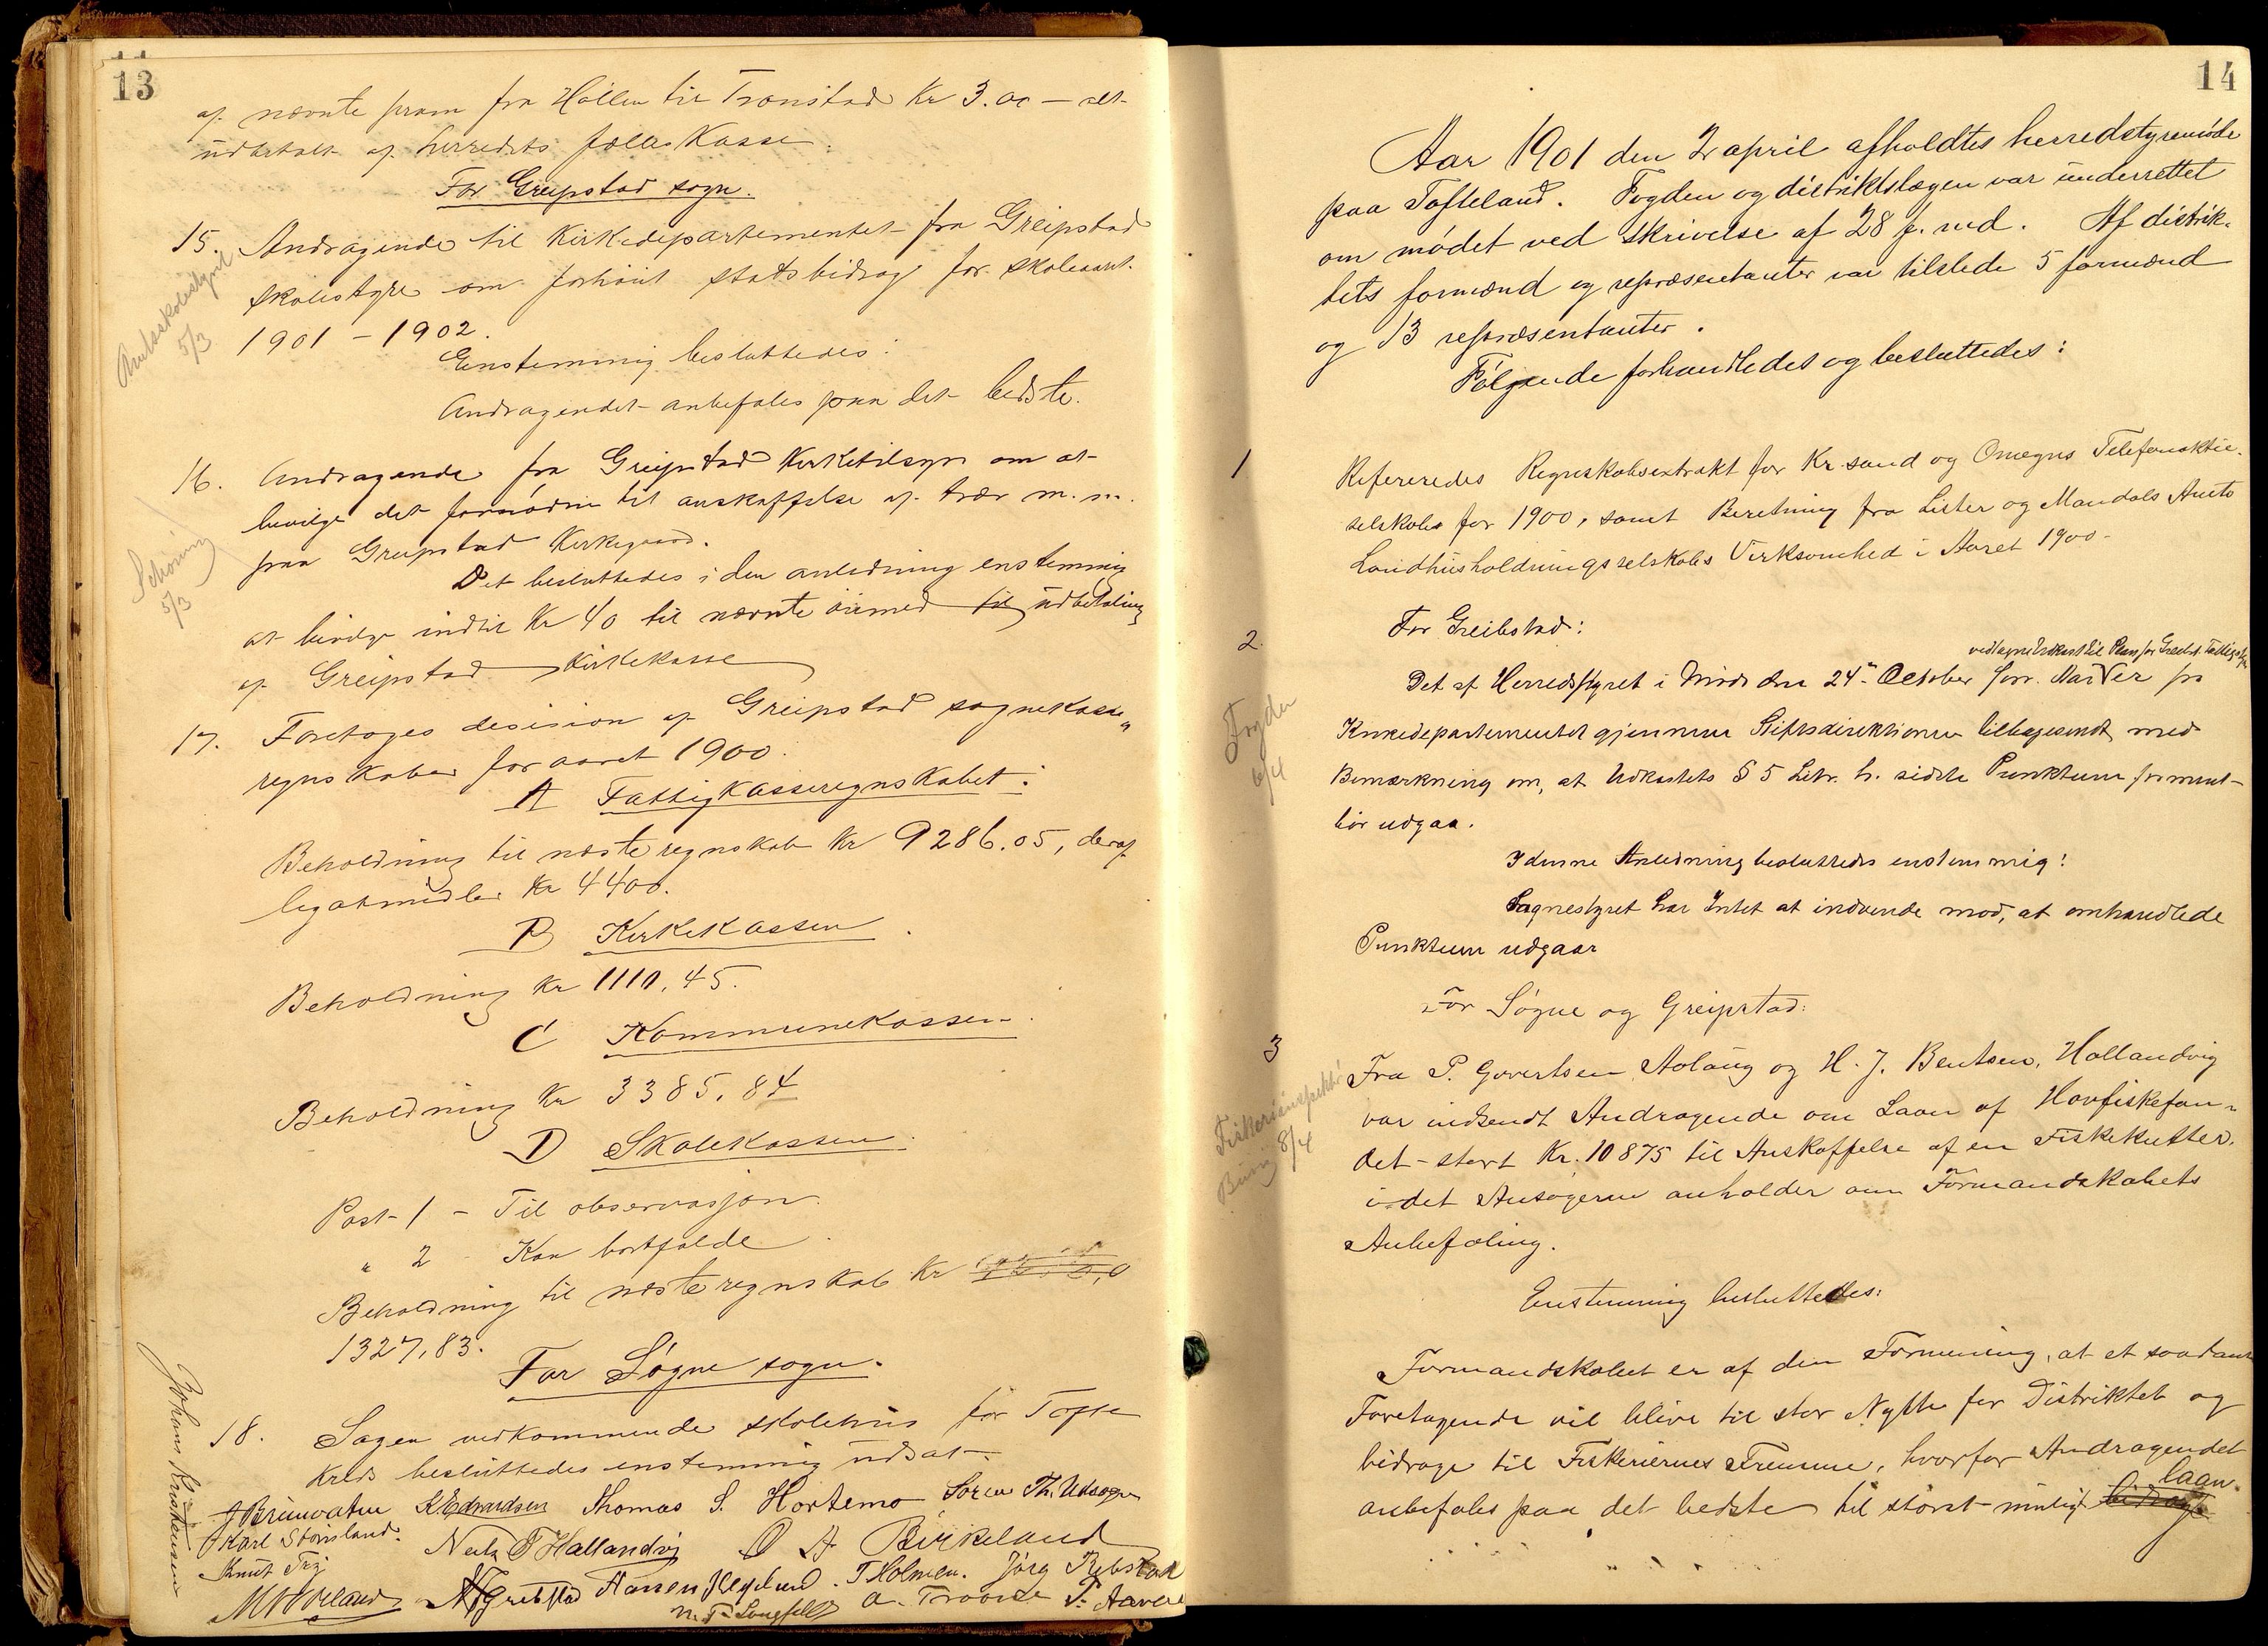 13
af nævnte pram fra Høllen til Tronstad Kr 3.00 – alt
udbetalt af herredets fælleskasse.
For Greipstad sogn.
15. Andragende til Kirkedepartementet fra Greipstad
skolestyre om forhøiet statsbidrag for skoleaaret
1901 – 1902.
Amtsskolestyret
5/3
Enstemmig besluttedes:
Andragendet anbefales paa det bedste.
16. Andragende fra Greipstad Kirketilsyn om at
bevilge det fornødne til anskaffelse af trær m.m.
paa Greipstad Kirkegaard.
Schøning
5/3
Det besluttedes i den anledning enstemmig
at bevilge indtil Kr 40 til nævnte øiemed til udbetaling
af Greipstad Kirkekasse
17. Foretoges desision af Greipstad sognekasse„
regnskaber for aaret 1900.
A Fattigkasseregnskabet:
Beholdning til næste regnskab Kr 9286.05, deraf
legatmidler Kr 4400.
B Kirkekassen.
Beholdning Kr 1110,45.
C Kommunekassen.
Beholdning Kr 3385,84
D Skolekassen.
Post 1 – Til observasjon.
„ 2 – Kan bortfalde.
Beholdning til næste regnskab Kr
1327,83.
For Søgne sogn.
18. Sagen vedkommende skolehus for Tofte
Kreds besluttedes enstemmig udsat.
J Brunvatne K Edvardsen Thomas S. Hortemo Søren Th. Udsogn
Karl Stønsland. Neils T Hallandvig O A Birkeland
Knut Try
N Greibstad Aanen Heglund. T Holmen. Jörg Rebstad
N. T. Langfeldt A. Traane P. Aaver
Johans Kristensen
14
Aar 1901 den 2 april afholdtes herredstyremøde
paa Tofteland. Fogden og distriktslægen var underrettet
om mødet ved skrivelse af 28 f. md. Af distrik-
tets formænd og repræsentanter var tilstede 5 formænd
og 13 repræsentanter.
Følgende forhandledes og besluttedes:
1 Refereredes Regnskabsextrakt for Kr.sand og Omegns Telefonaktie-
selskab for 1900, samt Beretning fra Lister og Mandals Amts
Landhusholdningsselskabs Virksomhed i Aaret 1900.
2. For Greibstad:
vedtagne Udkast til Plan for Greibst. Fattigstyre
Det af Herredsstyret i Møde den 24de October forr. Aar V er fra
Kirkedepartementet gjennem Stiftsdirektionen tilbagesendt med
Bemærkning om, at Udkastets § 5 Litr. h. sidste Punktum formentl.
bør udgaa.
Fogden
6/4
I denne Anledning besluttedes enstemmig:
Sognestyret har Intet at indvende mod, at omhandlede
Punktum udgaar
For Søgne og Greipstad:
3 Fra P. Govertsen Aolaug og H. J. Bentsen, Hallandvig
var indsendt Andragende om Laan af Havfiskefon-
det – stort Kr. 10875 til Anskaffelse af en Fiskekutter.
i det Ansøgerne anholder om Formandskabets
Anbefaling.
Fiskeriinspektør
8/4
Enstemmig besluttedes:
Formandskabet er af den Formening, at et saadant
Foretagende vil blive til stor Nytte for Distriktet og
bidrage til Fiskeriernes Fremme, hvorfor Andragendet
anbefales paa det bedste til størst mulig bidrag laan.